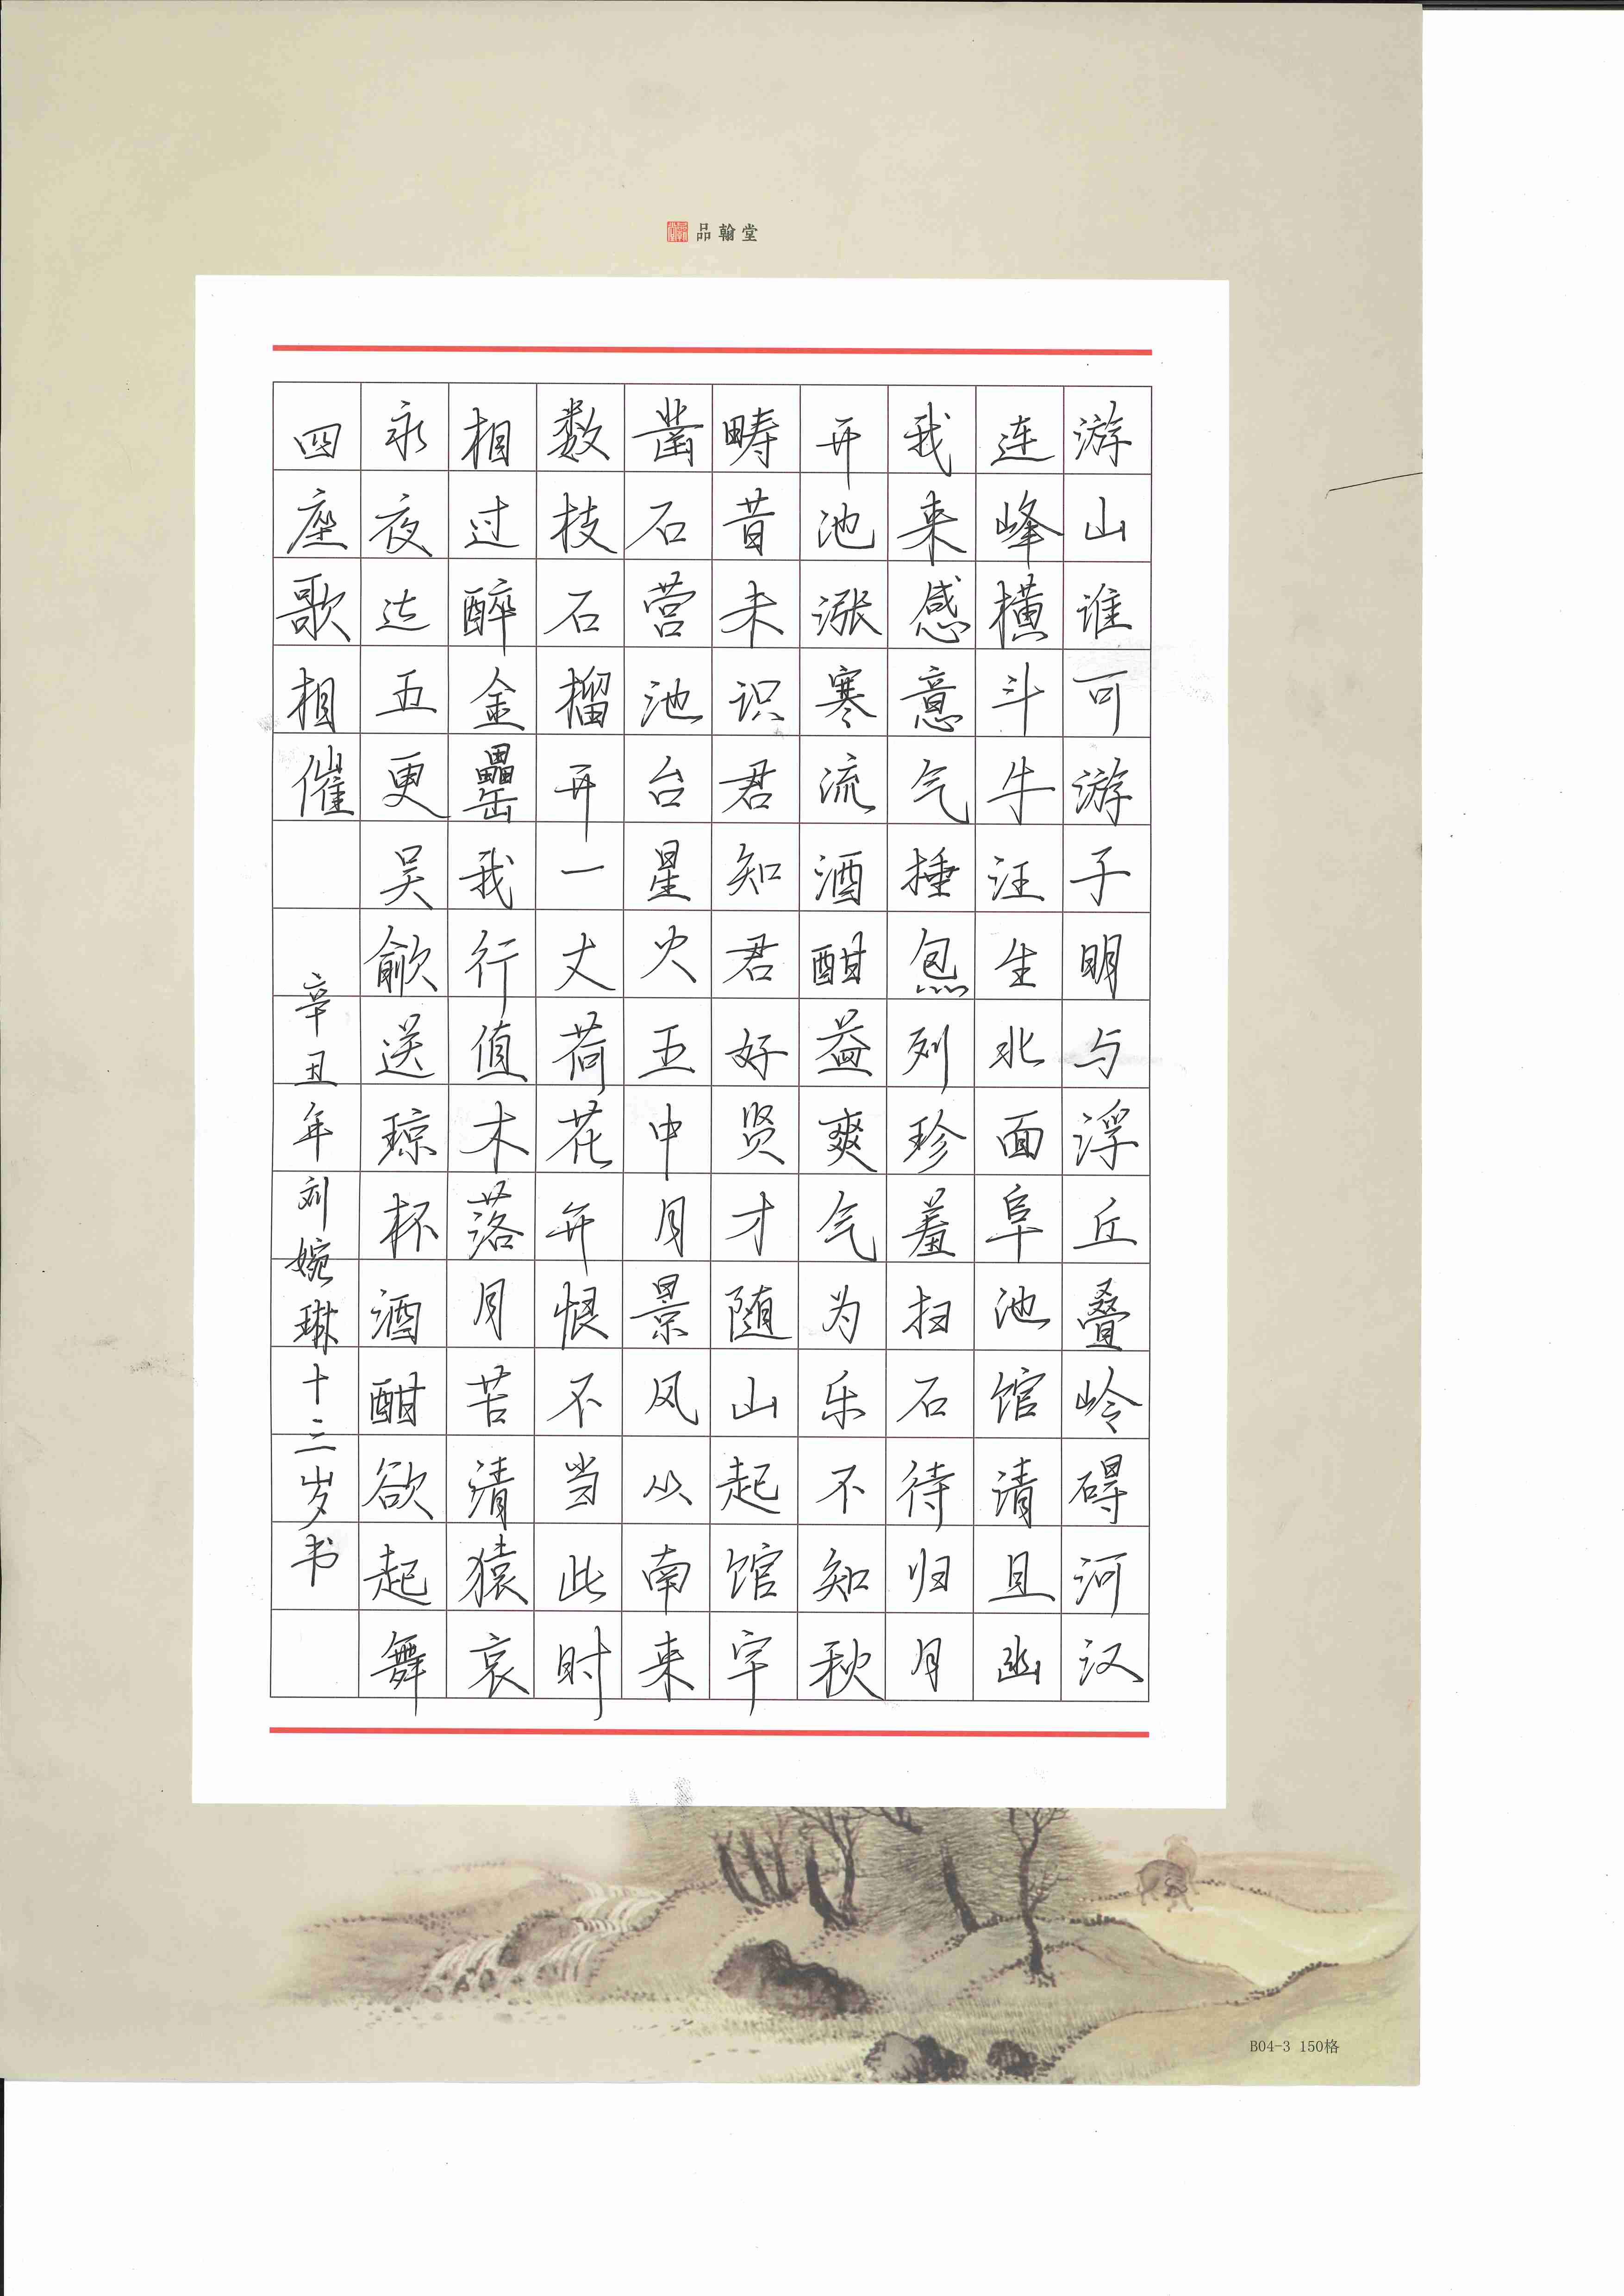 品翰堂
游山谁可游子明与浮丘叠岭碍河汉
连峰横斗牛汪生北面阜池馆清且幽
我来感意气捶炰列珍羞扫石待归月
开池涨寒流酒酣益爽气为乐不知秋
畴昔未识君知君好贤才随山起馆宇
凿石营池台星火五中月景风从南来
数枝石榴开一丈荷花开恨不当此时
相过醉金罍我行值木落月苦清猿哀
永夜达五更吴歈送琼杯酒酣欲起舞
四座歌相催
辛丑年刘婉琳十三岁书
B04-3 150格